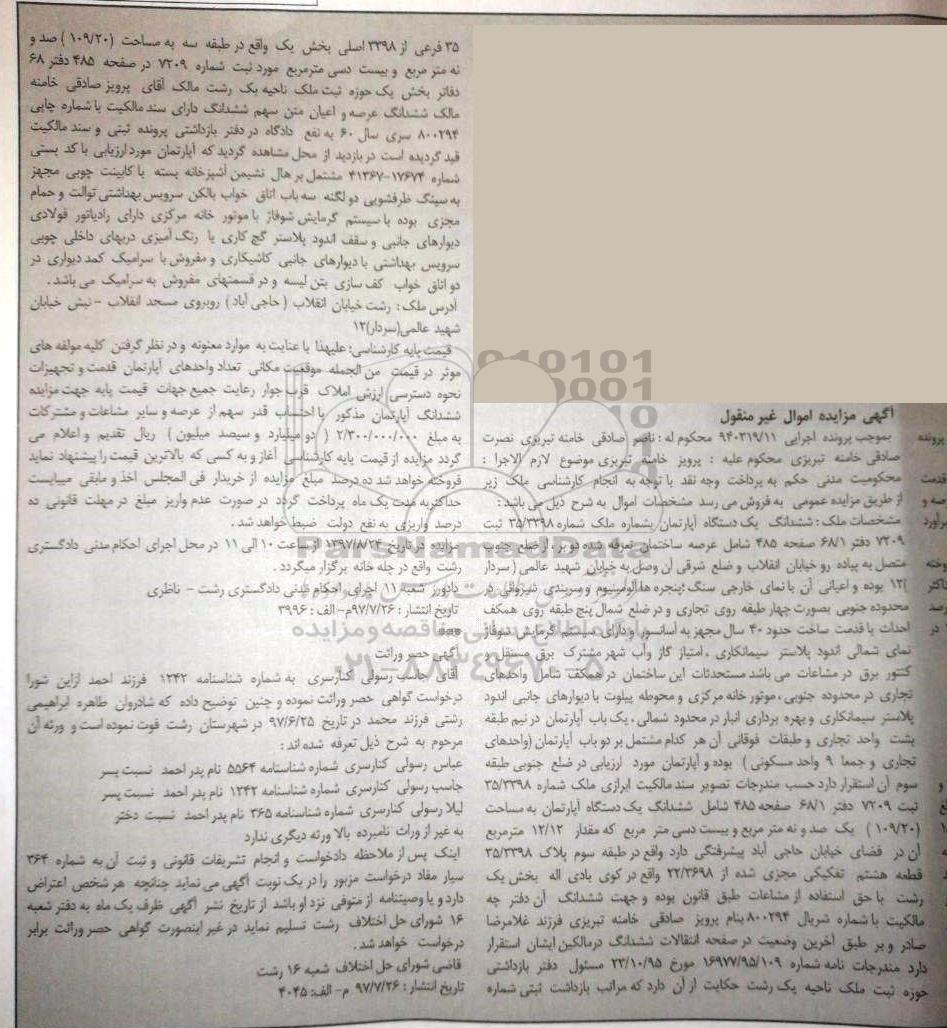 آگهی مزایده اموال غیر منقول
بموجب پرونده اجرایی ۹۴۰۳۱۹/۱۱ محکوم له : ناصر صادقی خامنه تبریزی نصرت
صادقی خامنه تبریزی محکوم علیه : پرویز خامنه تبریزی موضوع لازم الاجرا :
محکومیت مدنی حکم به پرداخت وجه نقد با توجه به انجام کارشناسی ملک زیر
از طریق مزایده عمومی به فروش می رسد مشخصات اموال به شرح ذیل می باشد :
مشخصات ملک : ششدانگ یک دستگاه آپارتمان بشماره ملک شماره ۳۵/۳۳۹۸ ثبت
۷۲۰۹ دفتر ۶۸/۱ صفحه ۴۸۵ شامل عرصه ساختمان تعرفه شده دو بر ، از ضلع جنوب
متصل به پیاده رو خیابان انقلاب و ضلع شرقی آن وصل به خیابان شهید عالمی ( سردار
)۱۲ بوده و اعیانی آن با نمای خارجی سنگ ؛پنجره ها آلومینیوم و سربندی شیروانی در
محدوده جنوبی بصورت چهار طبقه روی تجاری و در ضلع شمال پنج طبقه روی همکف
احداث با قدمت ساخت حدود ۴۰ سال مجهز به آسانسور و دارای سیستم گرمایش شوفاژ
نمای شمالی اندود پلاستر سیمانکاری ، امتیاز گاز وآب شهر مشترک برق مستقل و
کنتور برق در مشاعات می باشد مستحدثات این ساختمان در همکف شامل واحدهای
تجاری در محدوده جنوبی ، موتور خانه مرکزی و محوطه پیلوت با دیوارهای جانبی اندود
پلاستر سیمانکاری و بهره برداری انبار در محدود شمالی ، یک باب آپارتمان در نیم طبقه
پشت واحد تجاری و طبقات فوقانی آن هر کدام مشتمل بر دو باب آپارتمان (واحدهای
تجاری و جمعا ۹ واحد مسکونی ) بوده و آپارتمان مورد ارزیابی در ضلع جنوبی طبقه
سوم آن استقرار دارد حسب مندرجات تصویر سند مالکیت ابرازی ملک شماره ۳۵/۳۳۹۸
ثبت ۷۲۰۹ دفتر ۶۸/۱ صفحه ۴۸۵ شامل ششدانگ یک دستگاه آپارتمان به مساحت
(۱۰۹/۲۰) یک صد و نه متر مربع و بیست دسی متر مربع که مقدار ۱۲/۱۲ مترمربع
آن در فضای خیابان حاجی آباد پیشرفتگی دارد واقع در طبقه سوم پلاک ۳۵/۳۳۹۸
قطعه هشتم تفکیکی مجزی شده از ۲۲/۳۶۹۸ واقع در کوی بادی اله بخش یک
رشت با حق استفاده از مشاعات طبق قانون بوده و جهت ششدانگ آن دفتر چه
مالکیت با شماره شریال ۸۰۰۲۹۴ بنام پرویز صادقی خامنه تبریزی فرزند غلامرضا
صادر و بر طبق آخرین وضعیت در صفحه انتقالات ششدانگ درمالکین ایشان استقرار
دارد مندرجات نامه شماره ۱۶۹۷۷/۹۵/۱۰۹ مورخ ۲۳/۱۰/۹۵ مسئول دفتر بازداشتی
حوزه ثبت ملک ناحیه یک رشت حکایت از آن دارد که مراتب بازداشت ثبتی شماره
۳۵ فرعی از ۳۳۹۸ اصلی بخش یک واقع در طبقه سه به مساحت (۱۰۹/۲۰) صد و
نه متر مربع و بیست دسی مترمربع مورد ثبت شماره ۷۲۰۹ در صفحه ۴۸۵ دفتر ۶۸
دفاتر بخش یک حوزه ثبت ملک ناحیه یک رشت مالک آقای پرویز صادقی خامنه
مالک ششدانگ عرصه و اعیان متن سهم ششدانگ دارای سند مالکیت با شماره چاپی
۸۰۰۲۹۴ سری سال ۶۰ به نفع دادگاه در دفتر بازداشتی پرونده ثبتی و سند مالکیت
قید گردیده است در بازدید از محل مشاهده گردید که آپارتمان مورد ارزیابی با کد پستی
شماره ۱۷۶۷۴-۴۱۳۶۷ مشتمل بر هال نشیمن آشپزخانه بسته با کابینت چوبی مجهز
به سینگ ظرفشویی دو لگنه سه باب اتاق خواب بالکن سرویس بهداشتی توالت و حمام
مجزی بوده با سیستم گرمایش شوفاژ با موتور خانه مرکزی دارای رادیاتور فولادی
دیوارهای جانبی و سقف اندود پلاستر گچ کاری با رنگ آمیزی دربهای داخلی چوبی
سرویس بهداشتی با دیوارهای جانبی کاشیکاری و مفروش با سرامیک کمد دیواری در
دو اتاق خواب کف سازی بتن لیسه و در قسمتهای مفروش به سرامیک می باشد .
آدرس ملک : رشت خیابان انقلاب ( حاجی آباد ) روبروی مسجد انقلاب - نبش خیابان
شهید عالمی(سردار)۱۲
قیمت پایه کارشناسی: علیهذا با عنایت به موارد معنونه و در نظر گرفتن کلیه مولفه های
موثر در قیمت من الجمله موقعیت مکانی تعداد واحدهای آپارتمان قدمت و تجهیزات
نحوه دسترسی ارزش املاک قرب جوار رعایت جمیع جهات قیمت پایه جهت مزایده
ششدانگ آپارتمان مذکور با احتساب قدر سهم از عرصه و سایر مشاعات و مشترکات
به مبلغ ۲/۳۰۰/۰۰۰/۰۰۰ ( دو میلیارد و سیصد میلیون ) ریال تقدیم و اعلام می
گردد مزایده از قیمت پایه کارشناسی آغاز و به کسی که بالاترین قیمت را پیشنهاد نماید
فروخته خواهد شد ده درصد مبلغ مزایده از خریدار فی المجلس اخذ و مابقی میبایست
حداکثر به مدت یک ماه پرداخت گردد در صورت عدم واریز مبلغ در مهلت قانونی ده
درصد واریزی به نفع دولت ضبط خواهد شد .
مزایده در تاریخ ۱۳۹۷/۸/۲۴ از ساعت ۱۰ الی ۱۱ در محل اجرای احکام مدنی دادگستری
رشت واقع در جله خانه برگزار میگردد .
دادورز شعبه ۱۱ اجرای احکام مدنی دادگستری رشت - ناظری
تاریخ انتشار : ۹۷/۷/۲۶م- الف : ۳۹۹۶
آگهی حصر وراثت
آقای جاسب رسولی کنارسری به شماره شناسنامه ۱۲۴۲ فرزند احمد ازاین شورا
درخواست گواهی حصر وراثت نموده و چنین توضیح داده که شادروان طاهره ابراهیمی
رشتی فرزند محمد در تاریخ ۹۷/۶/۲۵ در شهرستان رشت فوت نموده است و ورثه آن
مرحوم به شرح ذیل تعرفه شده اند :
عباس رسولی کنارسری شماره شناسنامه ۵۵۶۴ نام پدر احمد نسبت پسر
جاسب رسولی کنارسری شماره شناسنامه ۱۲۴۲ نام پدر احمد نسبت پسر
لیلا رسولی کنارسری شماره شناسنامه ۳۶۵ نام پدر احمد نسبت دختر
به غیر از وراث نامبرده بالا ورثه دیگری ندارد
اینک پس از ملاحظه دادخواست و انجام تشریفات قانونی و ثبت آن به شماره ۳۶۴
سیار مفاد درخواست مزبور را در یک نوبت آگهی می نماید چنانچه هر شخص اعتراض
دارد و یا وصیتنامه از متوفی نزد او باشد از تاریخ نشر آگهی ظرف یک ماه به دفتر شعبه
۱۶ شورای حل اختلاف رشت تسلیم نماید در غیر اینصورت گواهی حصر وراثت برابر
درخواست خواهد شد .
قاضی شورای حل اختلاف شعبه ۱۶ رشت
تاریخ انتشار : ۹۷/۷/۲۶ م- الف: ۴۰۴۵
ParsNamadData
پایگاه اطلاع رسانی مناقصه و مزایده
۰۲۱-۸۸۳۴۹۶۷۰-۵